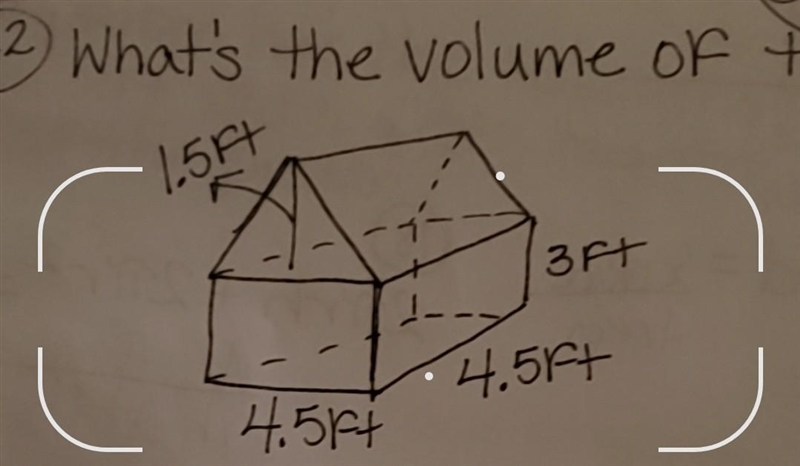 2) What's the volume of t
1.5ft
3ft
4.5ft
4.5ft